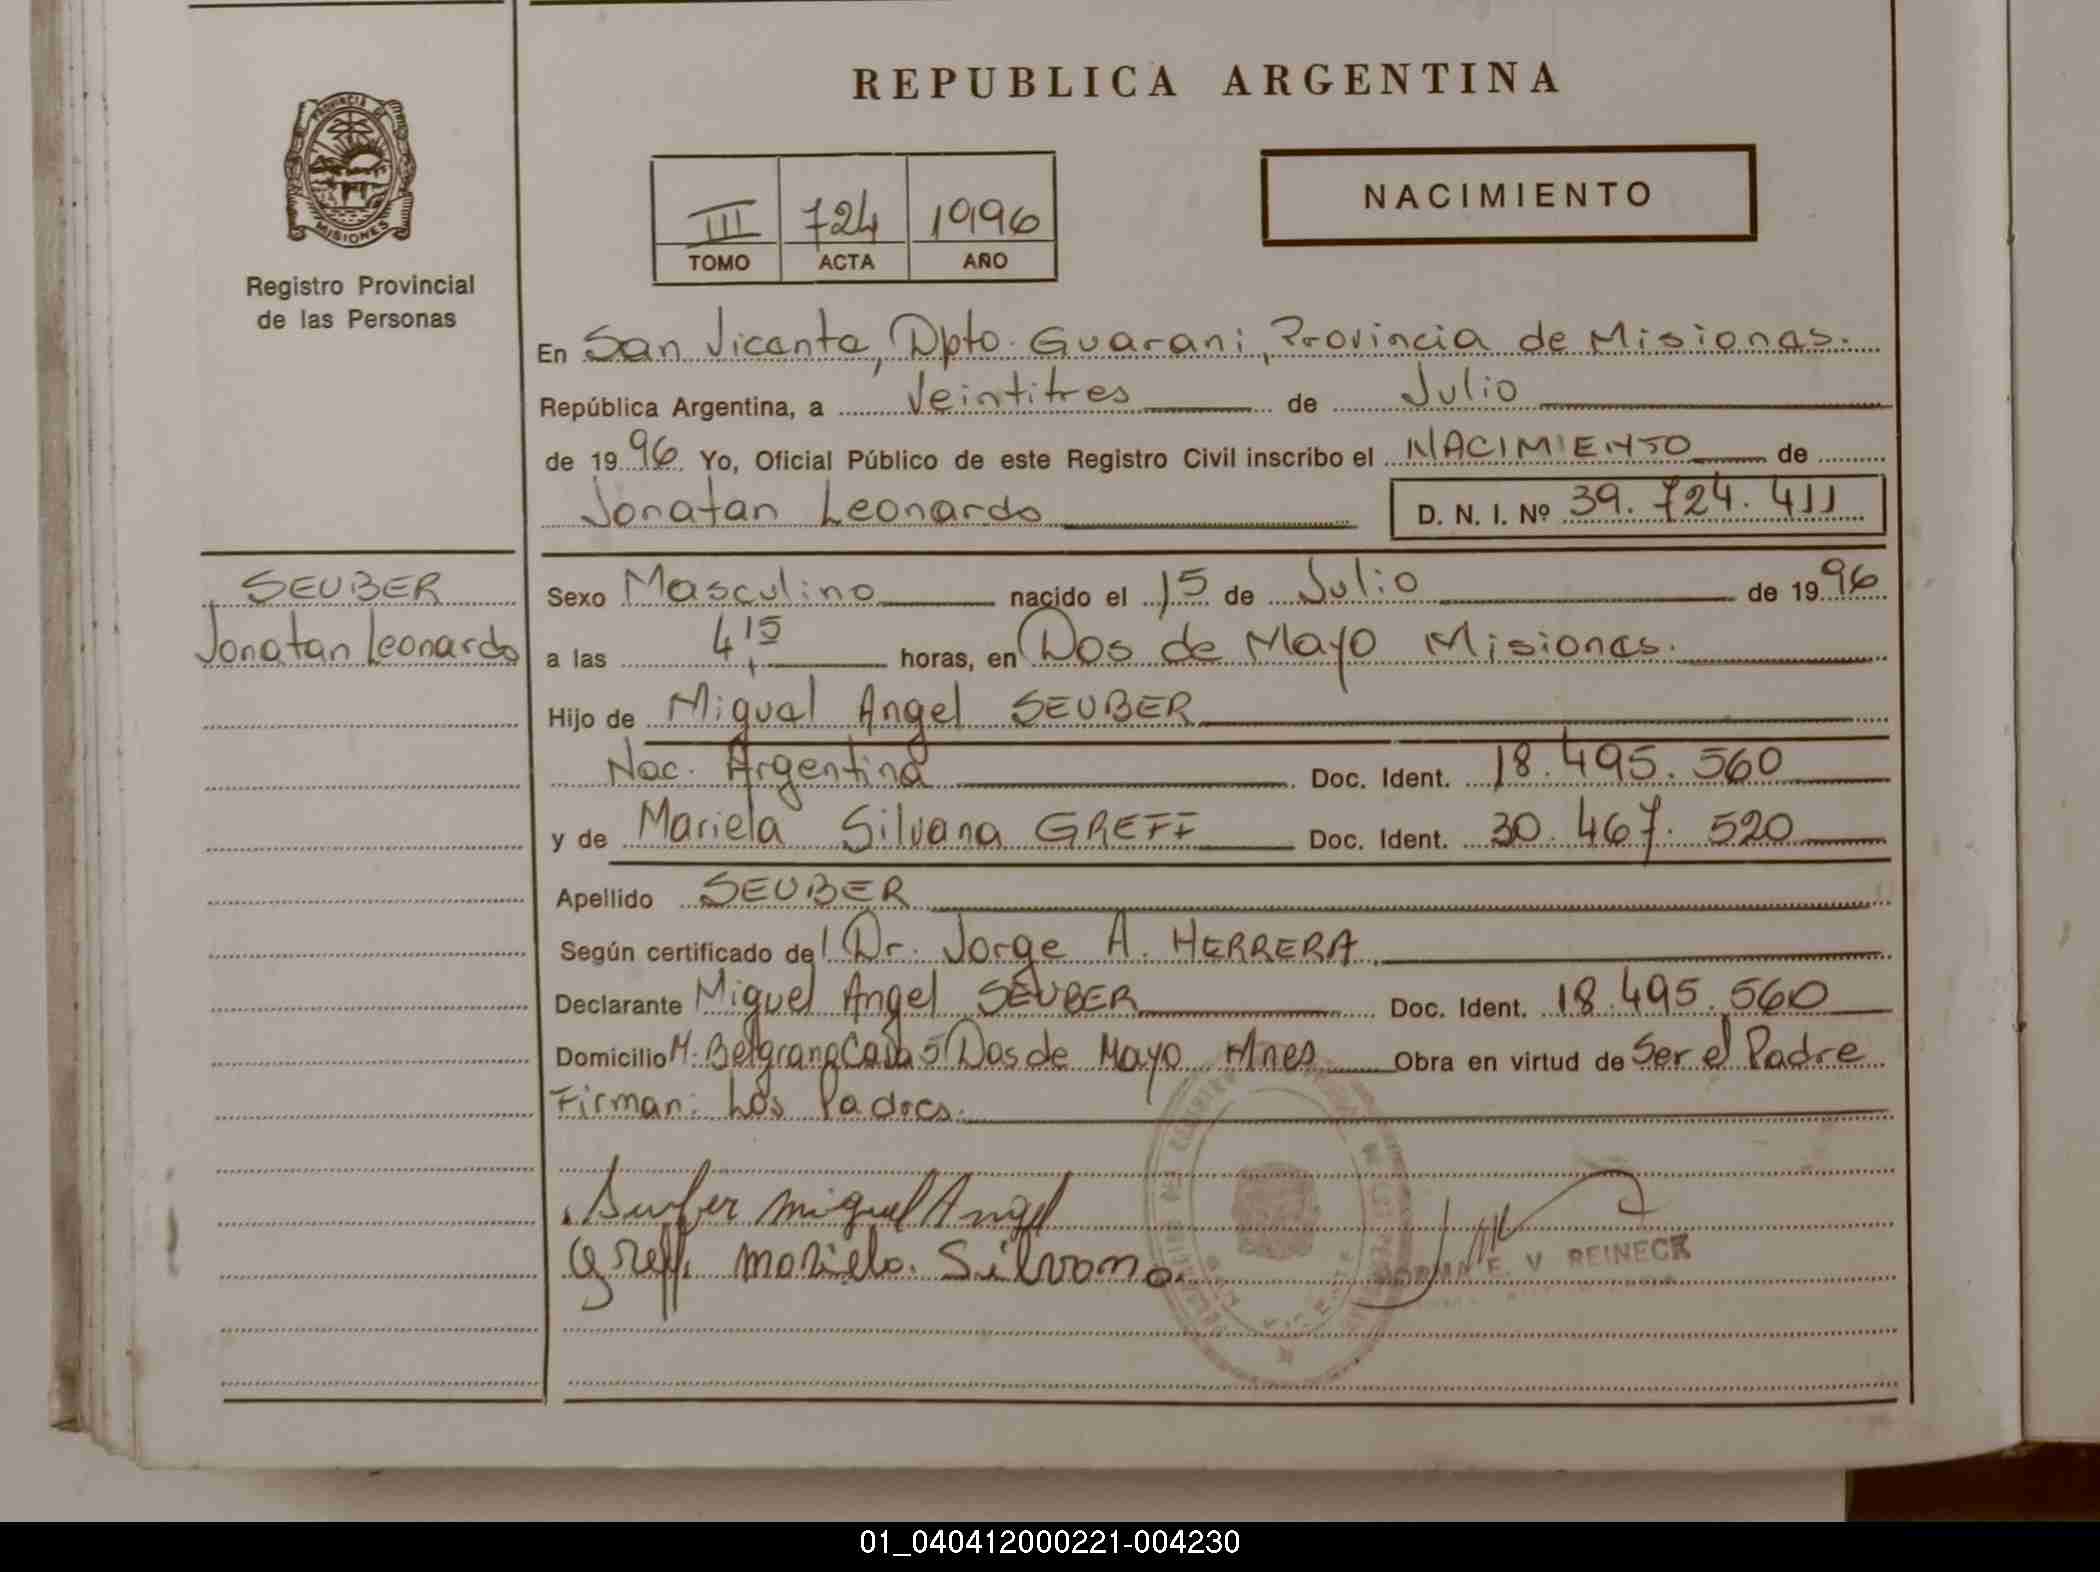 REPUBLICA ARGENTINA
PROVINCIA DE
MISIONES
Registro Provincial
de las Personas
III 724 1996
TOMO ACTA AÑO
NACIMIENTO
En San Vicente, Dpto. Guarani, Provincia de Misiones.
República Argentina, a Veintitres de Julio
de 1996 Yo, Oficial Público de este Registro Civil inscribo el NACIMIENTO de
Jonatan Leonardo D. N. I. Nº 39.724.411
SEUBER
Jonatan Leonardo
Sexo Masculino nacido el 15 de Julio de 1996
a las 4,15 horas, en Dos de Mayo Misiones.
Hijo de Miguel Angel SEUBER
Nac. Argentina Doc. Ident. 18.495.560
y de Mariela Silvana GREFF Doc. Ident. 30.467.520
Apellido SEUBER
Según certificado del Dr. Jorge A. HERRERA
Declarante Miguel Angel SEUBER Doc. Ident. 18.495.560
Domicilio M. Belgrano Casa 5 Dos de Mayo Mnes Obra en virtud de Ser el Padre
Firman: Los Padres.
Miguel Angel
Greff. Mariela. Silvana.
NORMA E. V. REINECK
01_040412000221-004230